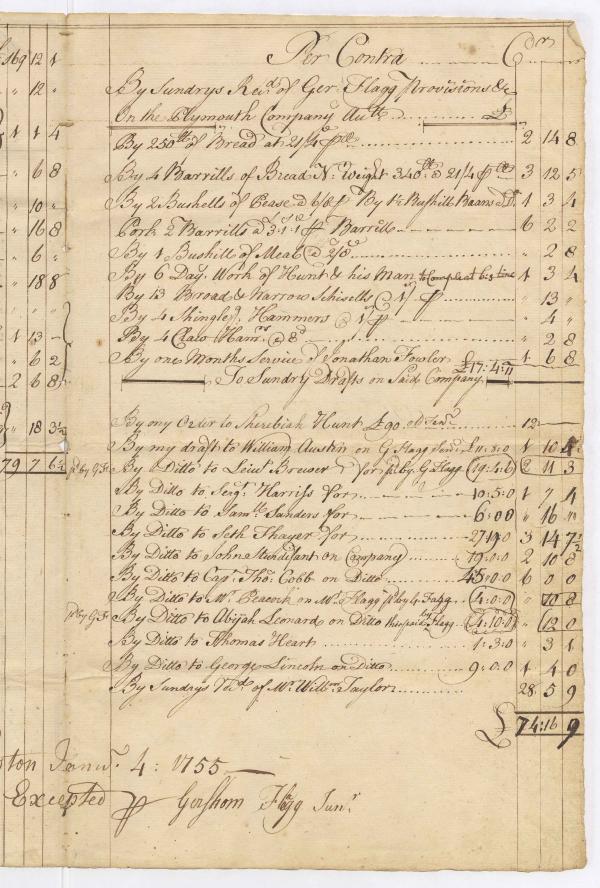 169 12 1
" 12 "
1 1 4
" 6 8
" 10 "
" 16 8
" 6 "
" 18 8
" " "
1 13 -
" 6 2
2 6 8
" 18 3½
79 7 6½
Per Contra Cr
By Sundrys Recd of Ger: Flagg Provisions &c
On the Plymouth Company Acctt £
By 250 lb of Bread at 21/4 p Ct 2 14 8
By 4 Barrills of Bread Nt Weight 340 lb @ 21/4 p Ct 3 12 5
By 2 Bushells of Pease @ 6/8 p By 1½ Bushill Baans 1 3 4
Pork 2 Barrills @ 3:1:1 p Barrill 6 2 2
By 1 Bushill of Meal @ 2/8 " 2 8
By 6 Days Work of Hunt & his Man to Compleat his time 1 3 4
By 13 Broad & Narrow Schisells @ 1/ p " 13 "
By 4 Shingleg Hammers @ 1/ p " 4 "
By 4 Claw Hamrs @ 8d " 2 8
By one Months Service of Jonathan Fowler £17:4:11 1 6 8
To Sundry Drafts on Said Company
By my Order to Sherebiah Hunt £90 old Tenr 12
By my draft to William Austin on G Flagg Senr £11:8:0 1 10 4
pd by G:F: By Ditto to Lieut Brewer for pd by G Flagg 19:4:6 2 11 3
By Ditto to Sergt Harriss for 10:5:0 1 7 4
By Ditto to Samll Sanders for 6:0:0 " 16 "
By Ditto to Seth Thayer for 3 14 7½
By Ditto to John Sturdifant on Company 19:0:0 2 10 8
By Ditto to Capt Thos Cobb on Ditto 45:0:0 6 0 0
By Ditto to Mr Peacock on Mr Flagg pd by G Flagg 4:0:0 " 10 8
pd by G:F: By Ditto to Abijah Leonard on Ditto this paid by Flagg 4:10:0 " 12 0
By Ditto to Thomas Heart 1:3:0 " 3 1
By Ditto to George Lincoln on Ditto 9:0:0 1 4 0
By Sundrys of Mr Willm Taylor 28 5 9
£ 74:16 9
ston Janur 4: 1755
Excepted p Gershom Flagg Junr